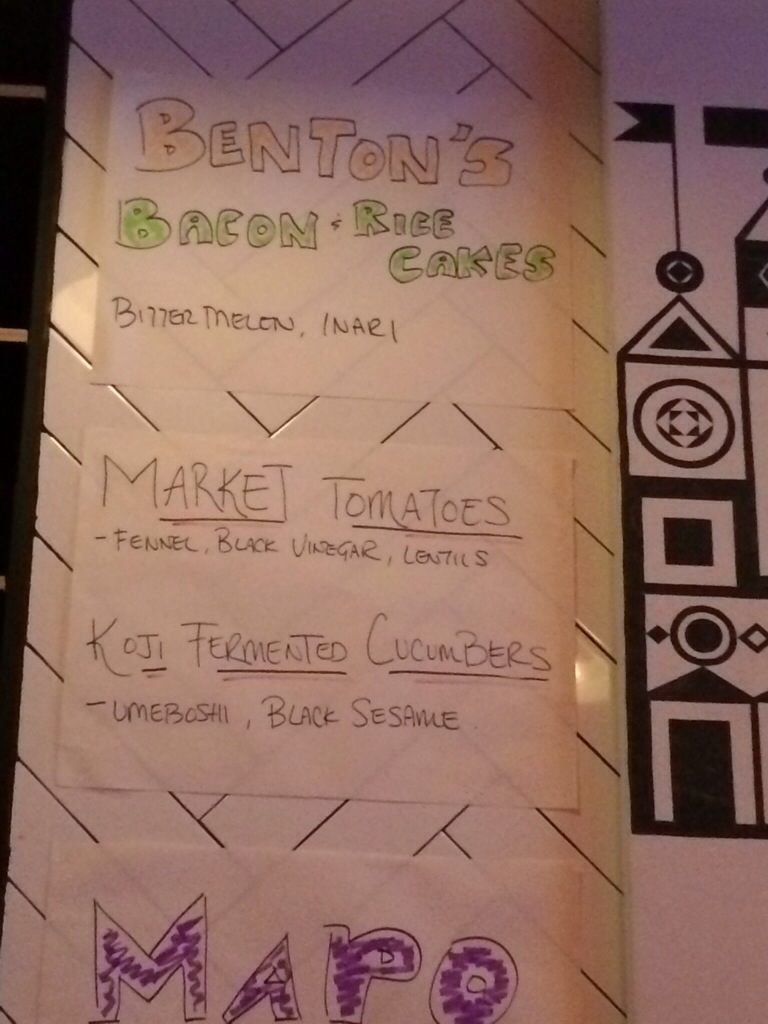 BENTON'S
BACON + RICE
CAKES
BITTER MELON, INARI
MARKET TOMATOES
- FENNEL, BLACK VINEGAR, LENTILS
KOJI FERMENTED CUCUMBERS
- UMEBOSHI, BLACK SESAME
MAPO